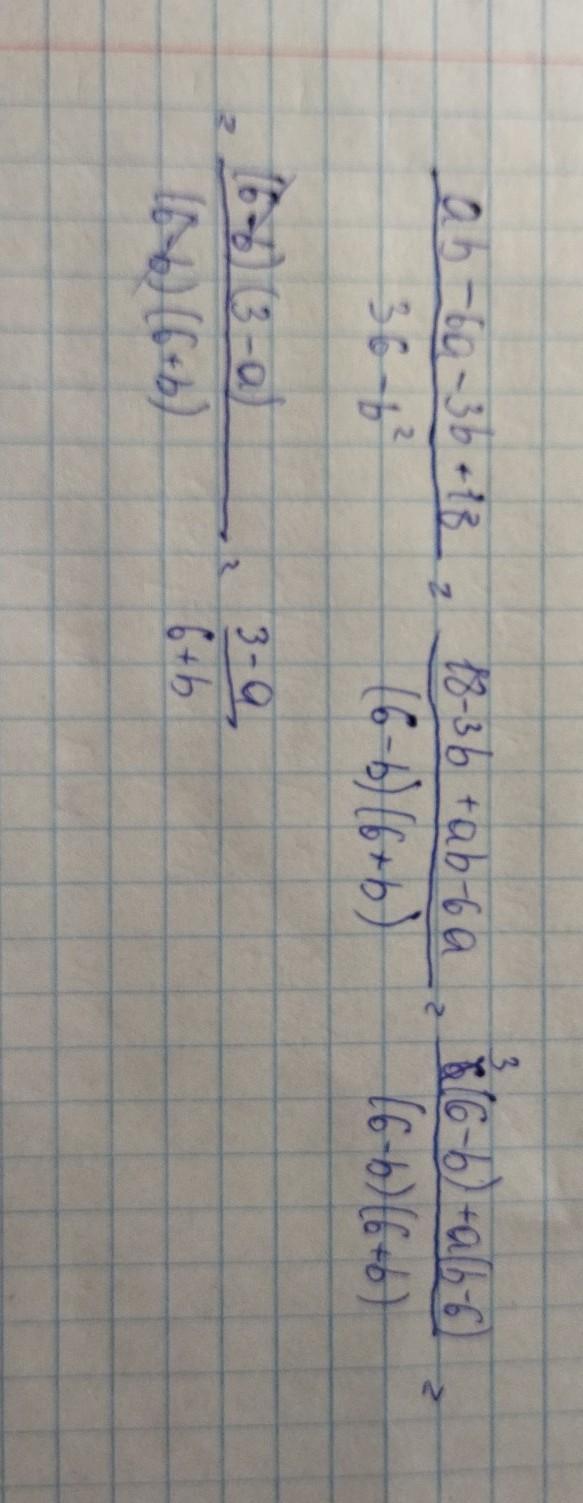 (ab - 6a - 3b + 18)/(36 - b²) = (18 - 3b + ab - 6a)/((6-b)(6+b)) = (3(6-b) + a(b-6))/((6-b)(6+b)) =
= ((6-b)(3-a))/((6-b)(6+b)) = (3-a)/(6+b)